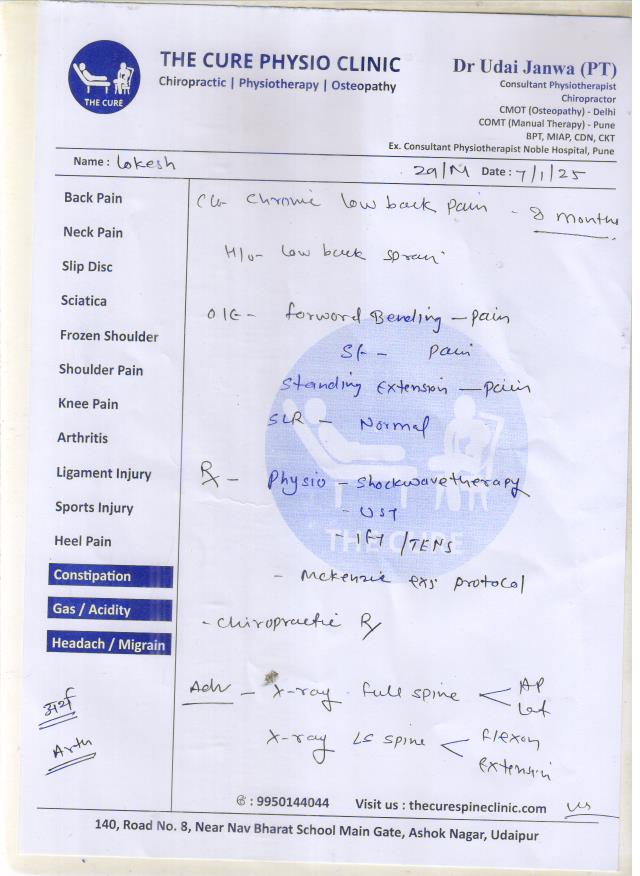 THE CURE PHYSIO CLINIC
Chiropractic | Physiotherapy | Osteopathy
THE CURE
Dr Udai Janwa (PT)
Consultant Physiotherapist
Chiropractor
CMOT (Osteopathy) - Delhi
COMT (Manual Therapy) - Pune
BPT, MIAP, CDN, CKT
Ex. Consultant Physiotherapist Noble Hospital, Pune
Name : Lokesh 29/M Date : 7/1/25
Back Pain
Neck Pain
Slip Disc
Sciatica
Frozen Shoulder
Shoulder Pain
Knee Pain
Arthritis
Ligament Injury
Sports Injury
Heel Pain
Constipation
Gas / Acidity
Headach / Migrain
अर्थ
Arth
chronic low back pain - 8 months
H/o - low back sprain
O/E - forward Bending - pain
SF - pain
standing extension - pain
SLR - Normal
Rx - Physio - shockwavetherapy
- UST
- IFT / TENS
- Mckenzie exs protocol
- chiropractic Rx
THE CURE
Adv - X-ray full spine < AP
Lat
X-ray LS spine < flexon
extension
: 9950144044 Visit us : thecurespineclinic.com
140, Road No. 8, Near Nav Bharat School Main Gate, Ashok Nagar, Udaipur